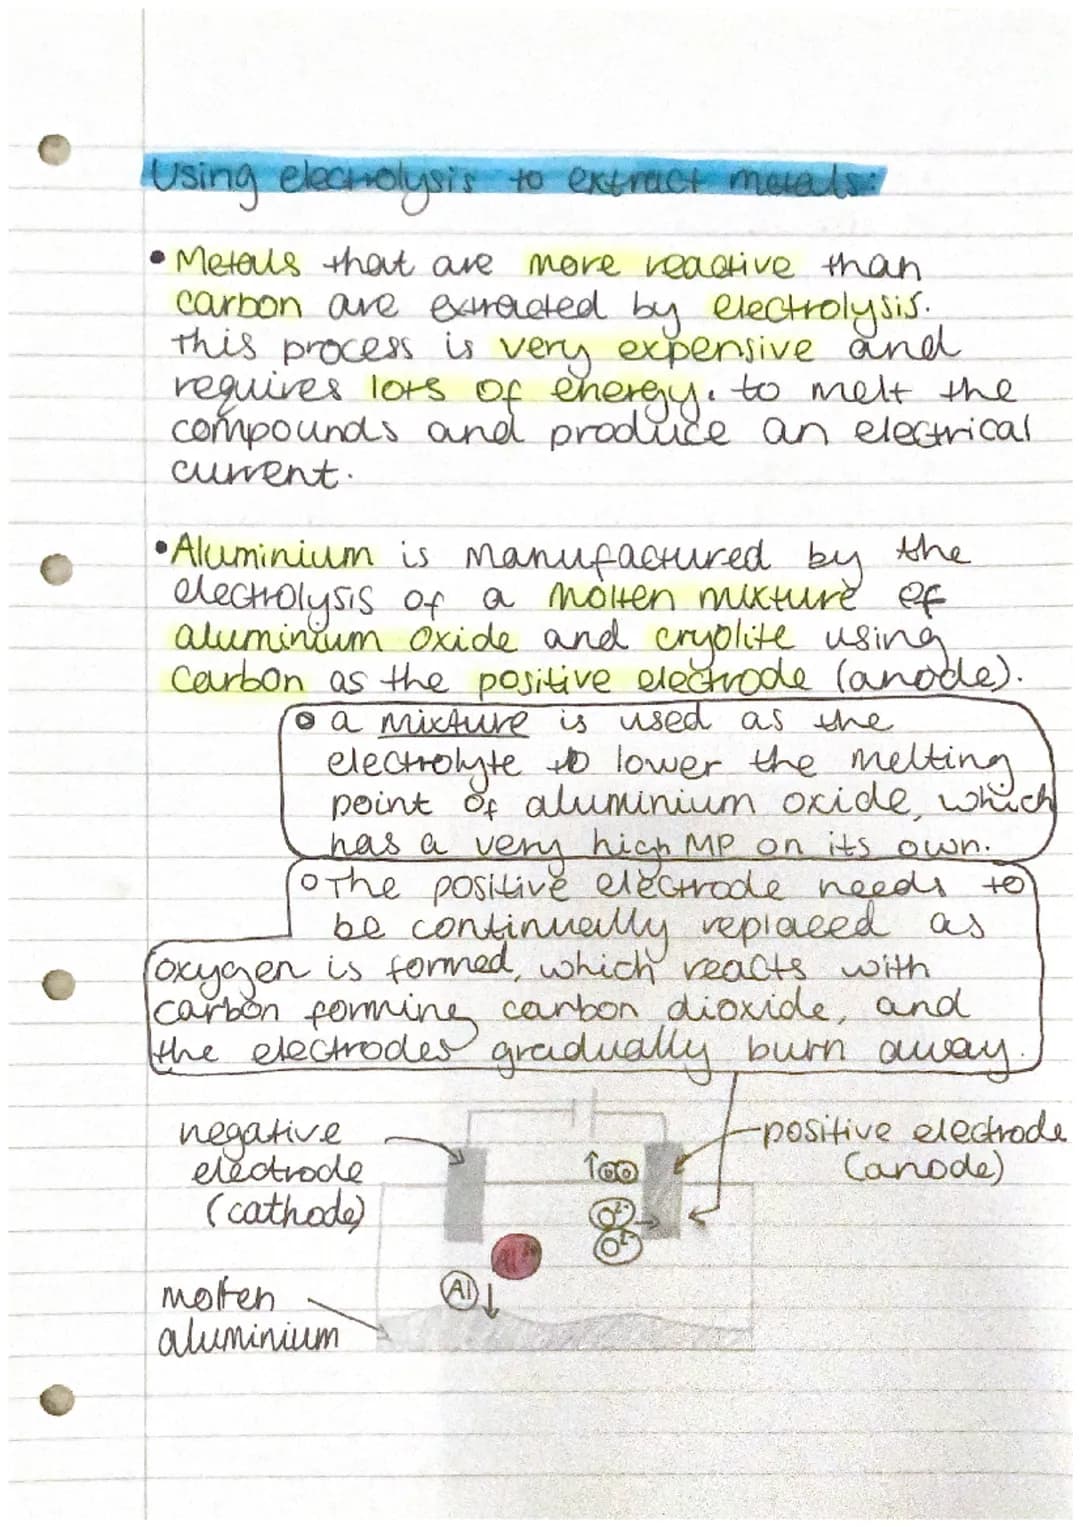 Using electrolysis to extract metals:
• Metals that are more reactive than
carbon are extracted by electrolysis.
This process is very expensive and
requires lots of energy. to melt the
compounds and produce an electrical
current.
• Aluminium is manufactured by the
electrolysis of a molten mixture of
aluminium oxide and cryolite using
carbon as the positive electrode (anode).
o a mixture is used as the
electrolyte to lower the melting
point of aluminium oxide, which
has a very high MP on its own.
o The positive electrode needs to
be continually replaced as
oxygen is formed, which reacts with
carbon forming carbon dioxide, and
the electrodes gradually burn away.
negative
electrode
(cathode)
positive electrode
(anode)
↑OO
O²⁻
O²⁻
Al³⁺
Al ↓
molten
aluminium